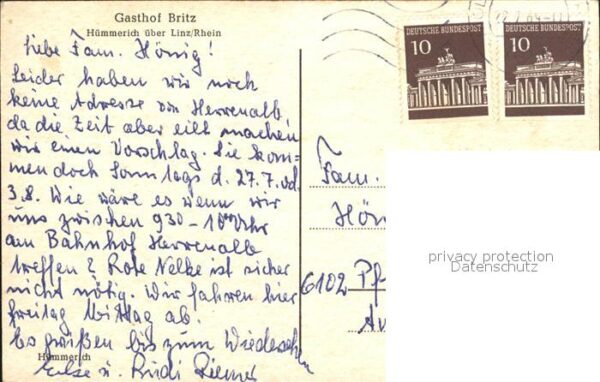 Gasthof Britz
Hümmerich über Linz/Rhein
Liebe Fam. Hönig!
Leider haben wir noch
keine Adresse von Herrenalb,
da die Zeit aber eilt machen
wir einen Vorschlag. Sie kom=
men doch Sonntags d. 27.7. od.
3.8. Wie wäre es wenn wir
uns zwischen 930 - 10 Uhr
am Bahnhof Herrenalb
treffen? Rote Nelke ist sicher
nicht nötig. Wir fahren hier
freitag Mittag ab.
Es grüßen bis zum Wiedersehen
Else u. Rudi
Hümmerich
DEUTSCHE BUNDESPOST
10
DEUTSCHE BUNDESPOST
10
Fam.
Hön
6102 Pf
privacy protection
Datenschutz